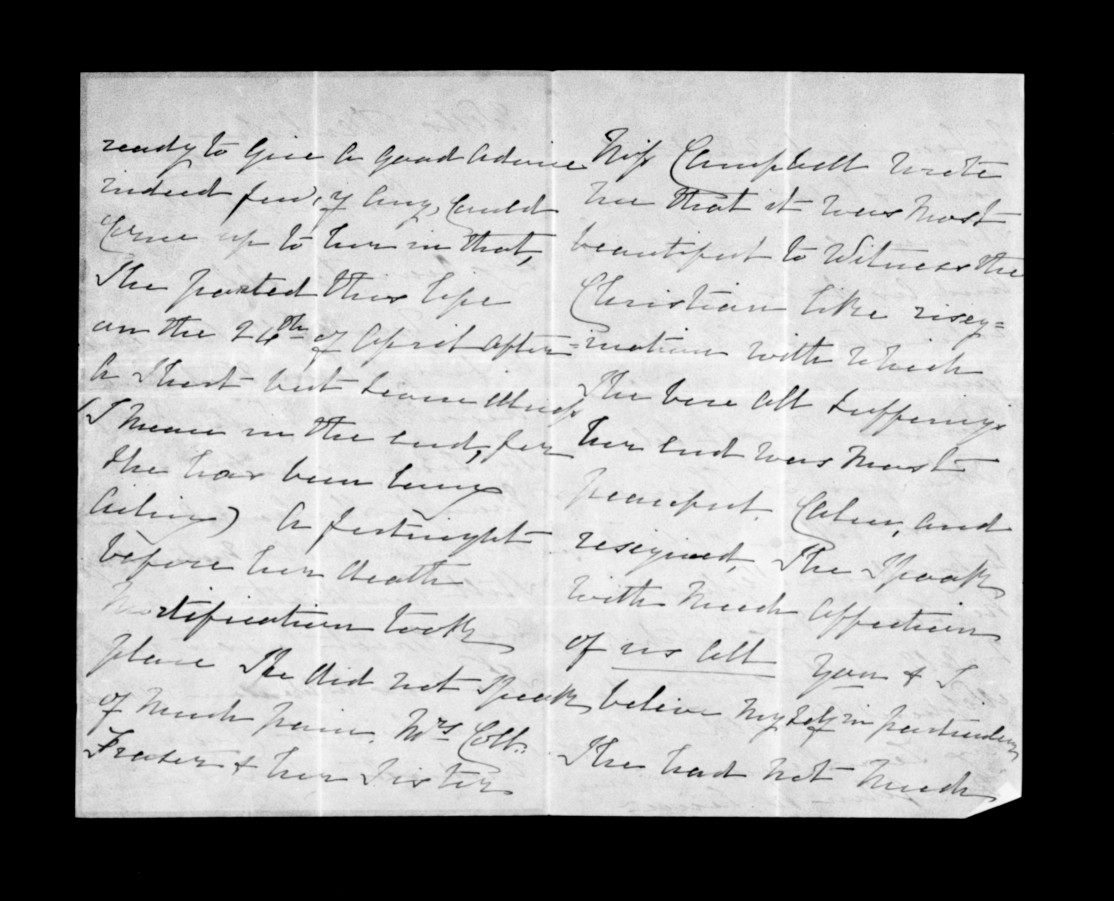 ready to give a good advice
indeed few, if any, could
come up to her in that,
She parted this life
on the 24th of April after
a short but severe illness
(I mean in the end, for
she has been long
ailing) a fortnight
before her death
mortification took
place She did not speak
of much pain. Mrs Coll.
Fraser & her sister
Miss Campbell wrote
me that it was most
beautiful to witness the
Christian like resig=
=nation with which
She bore all suffering,
her end was most
peaceful. Calm, and
resigned, She spoak
with much affection
of us all you & I
believe myself in particular
She had not much